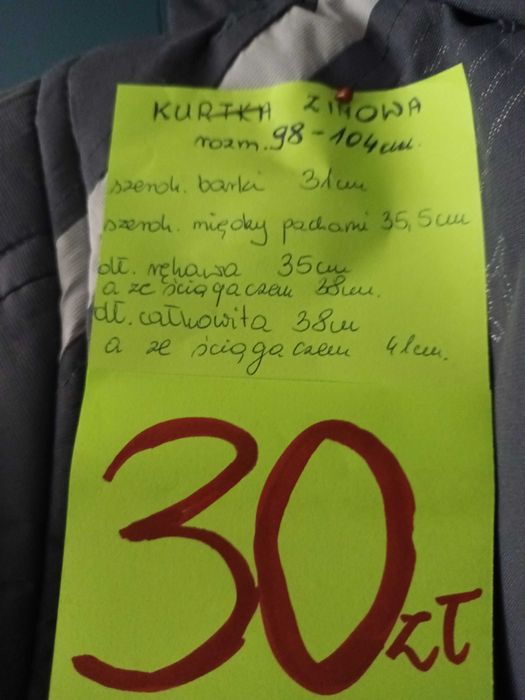 KURTKA ZIMOWA
rozm. 98-104cm.
szerok. barki 31cm
szerok. między pachami 35,5cm
dł. rękawa 35cm
a ze ściągaczem 38cm.
dł. całkowita 38cm
a ze ściągaczem 41cm.
30 zł